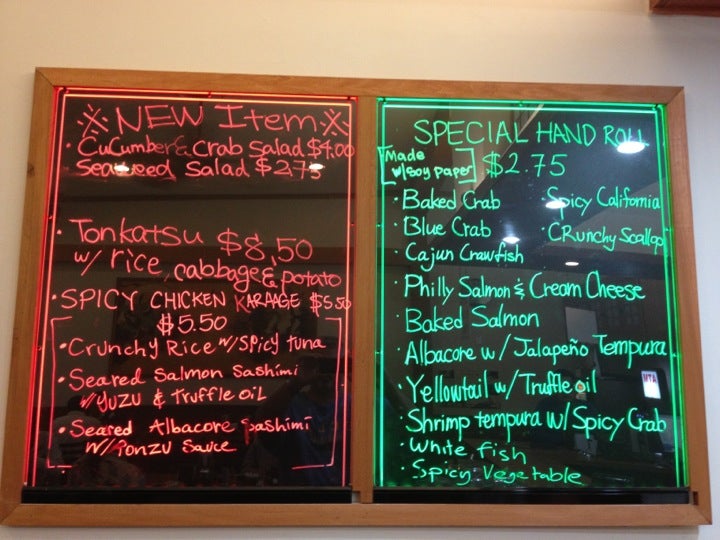 ※ NEW Item ※
· Cucumber & Crab Salad $4.00
Seaweed Salad $2.75
· Tonkatsu $8,50
w/ rice, cabbage & potato
· SPICY CHICKEN KARAAGE $5.50
$5.50
· Crunchy Rice w/ Spicy tuna
· Seared Salmon Sashimi
w/ Yuzu & truffle oil
· Seared Albacore Sashimi
w/ Ponzu Sauce
SPECIAL HAND ROLL
Made
w/ soy paper
$2.75
· Baked Crab
· Spicy California
· Blue Crab
· CRunchy Scallop
· Cajun Crawfish
· Philly Salmon & Cream Cheese
· Baked Salmon
· Albacore w/ Jalapeño Tempura
· Yellowtail w/ Truffle oil
· Shrimp tempura w/ Spicy Crab
· White fish
· Spicy Vegetable